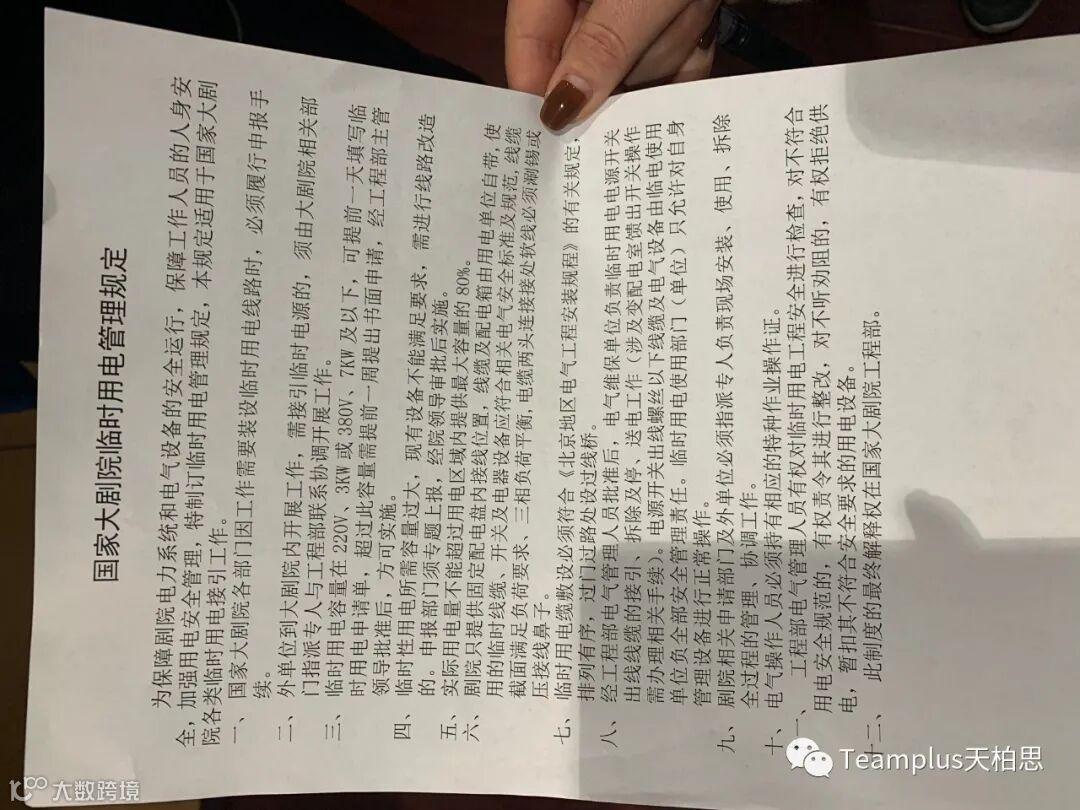 国家大剧院临时用电管理规定
为保障剧院电力系统和电气设备的安全运行，保障工作人员的人身安
全，加强用电安全管理，特制订临时用电管理规定，本规定适用于国家大剧
院各类临时用电接引工作。
一、国家大剧院各部门因工作需要装设临时用电线路时，必须履行申报手
续。
二、外单位到大剧院内开展工作，需接引临时电源的，须由大剧院相关部
门指派专人与工程部联系协调开展工作。
三、临时用电容量在 220V、3KW 或 380V、7KW 及以下，可提前一天填写临
时用电申请单，超过此容量需提前一周提出书面申请，经工程部主管
领导批准后，方可实施。
四、临时性用电所需容量过大，现有设备不能满足要求，需进行线路改造
的。申报部门须专题上报，经院领导审批后实施。
五、实际用电量不能超过用电区域内提供最大容量的 80%。
六、剧院只提供固定配电盘内接线位置，线缆及配电箱由用电单位自带，使
用的临时线缆、开关及电器设备应符合相关电气安全标准及规范，线缆
截面满足负荷要求、三相负荷平衡，电缆两头连接处软线必须涮锡或
压接线鼻子。
七、临时用电缆敷设必须符合《北京地区电气工程安装规程》的有关规定，
排列有序，过门过路处设过线桥。
八、经工程部电气管理人员批准后，电气维保单位负责临时用电电源开关
出线线缆的接引、拆除及停、送电工作（涉及变配电室馈出开关操作
需办理相关手续）。电源开关出线螺丝以下线缆及电气设备由临电使用
单位负全部安全管理责任。临时用电使用部门（单位）只允许对自身
管理设备进行正常操作。
九、剧院相关申请部门及外单位必须指派专人负责现场安装、使用、拆除
全过程的管理、协调工作。
十、电气操作人员必须持有相应的特种作业操作证。
十一、工程部电气管理人员有权对临时用电工程安全进行检查，对不符合
用电安全规范的，有权责令其进行整改，对不听劝阻的，有权拒绝供
电，暂扣其不符合安全要求的用电设备。
十二、此制度的最终解释权在国家大剧院工程部。
Teamplus天柏思
大数跨境